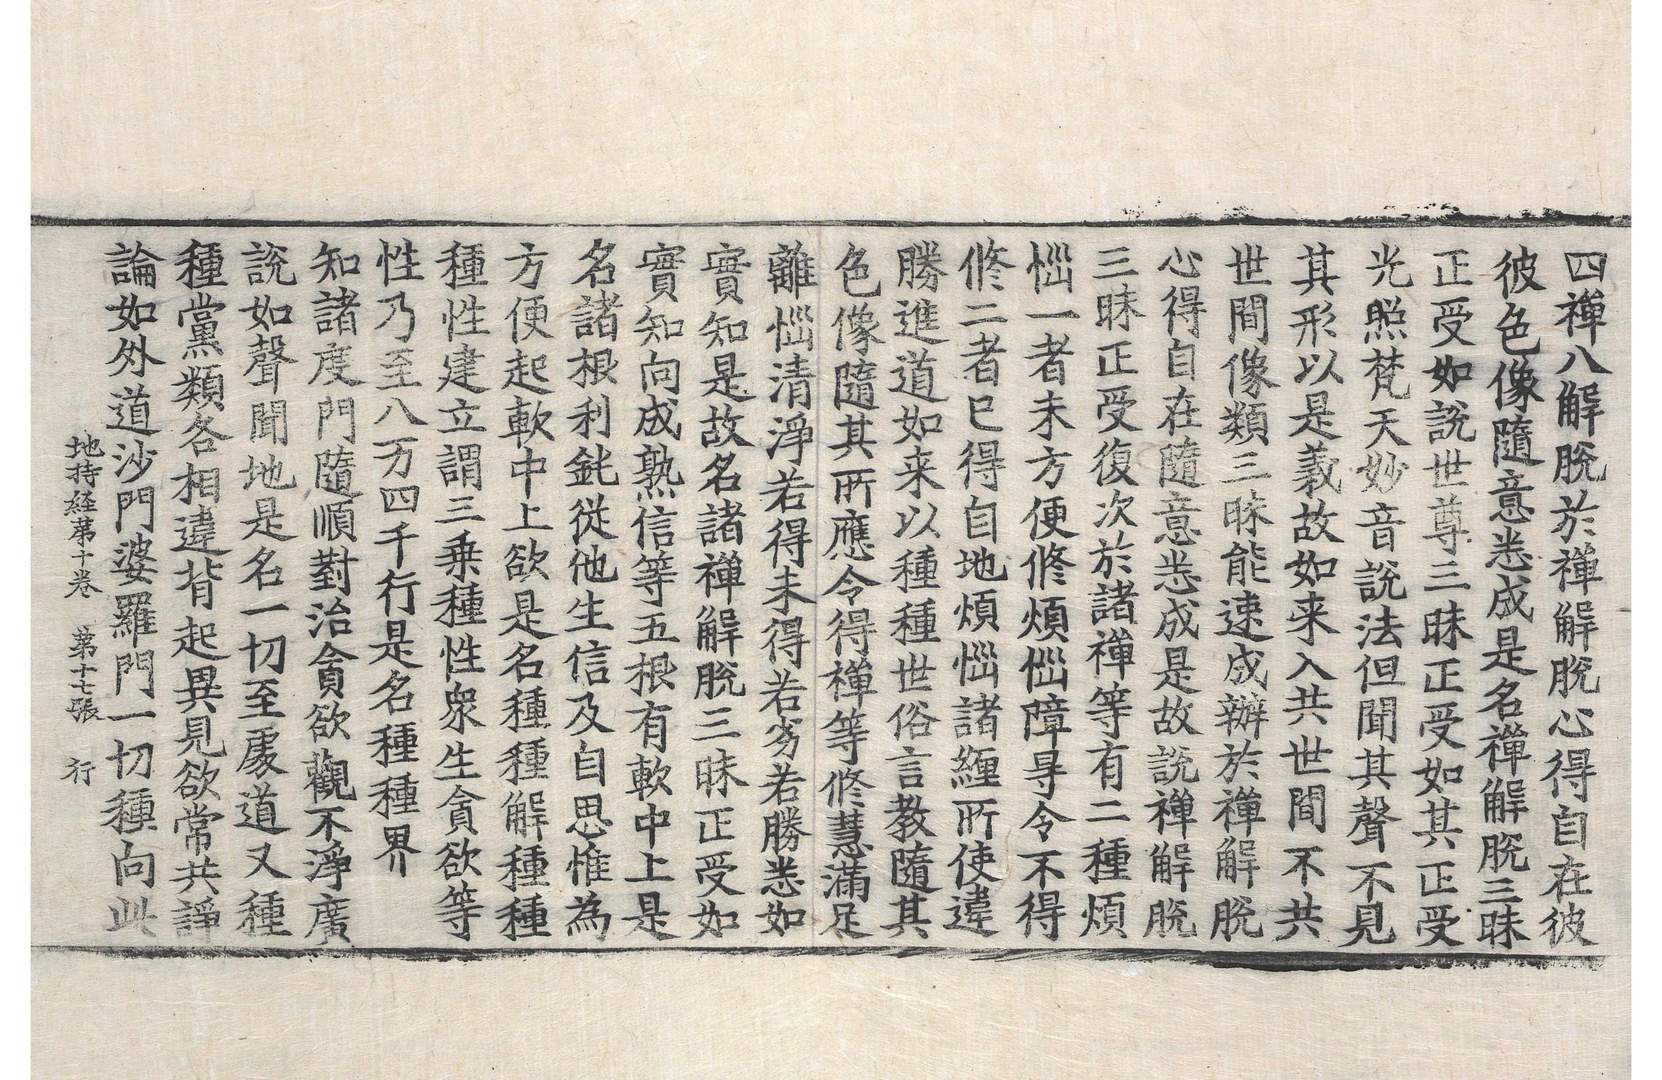 四禪八解脫於禪解脫心得自在彼
彼色像隨意悉成是名禪解脫三昧
正受如說世尊三昧正受如其正受
光照梵天妙音說法但聞其聲不見
其形以是義故如来入共世間不共
世間像類三昧能速成辦於禪解脫
心得自在隨意悉成是故說禪解脫
三昧正受復次於諸禪等有二種煩
惱一者未方便修煩惱障㝵令不得
修二者已得自地煩惱諸纏所使違
勝進道如来以種種世俗言教隨其
色像隨其所應令得禪等修慧滿足
離惱清淨若得未得若劣若勝悉如
實知是故名諸禪解脫三昧正受如
實知向成熟信等五根有軟中上是
名諸根利鈍從他生信及自思惟為
方便起軟中上欲是名種種解種種
種性建立謂三乗種性衆生貪欲等
性乃至八万四千行是名種種界
知諸度門隨順對治貪欲觀不淨廣
說如聲聞地是名一切至處道又種
種黨類各相違背起異見欲常共諍
論如外道沙門婆羅門一切種向此
地持経苐十卷 苐十七張 行